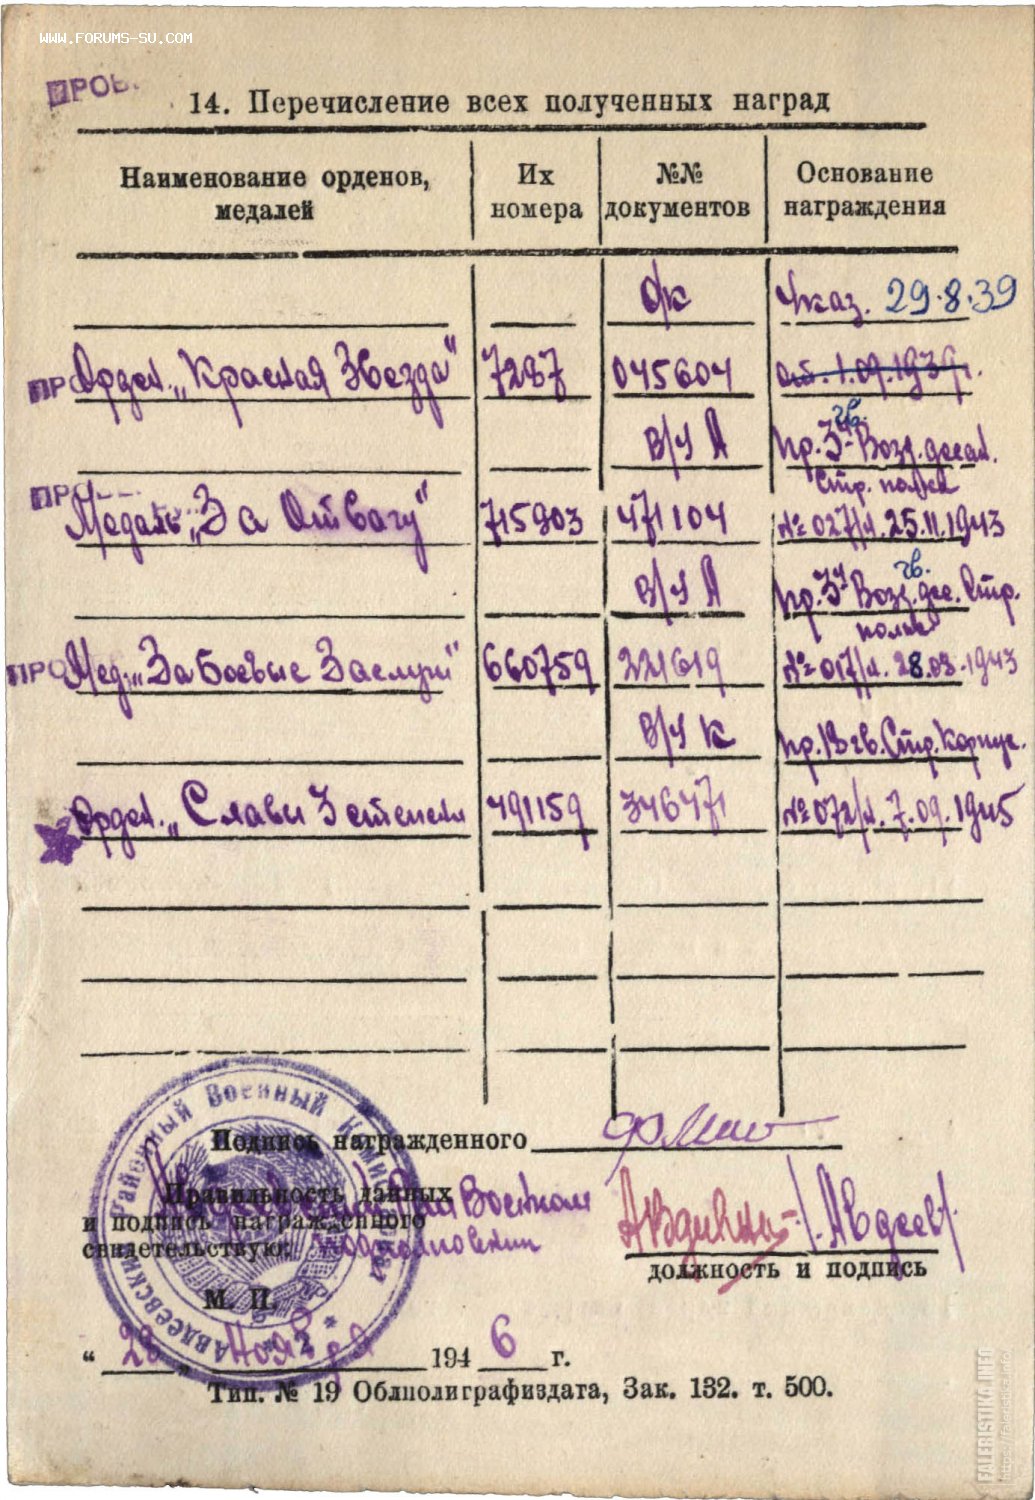 WWW.FORUMS-SU.COM
14. Перечисление всех полученных наград
Наименование орденов, медалей
Их номера
№№ документов
Основание награждения
о/к Указ. 29.8.39
Орден „Красная Звезда" 7287 045604 от. 1.09.1939г.
В/Ч А пр. 3 гв. Возд. десан.
Стр. полка
Медаль „За Отвагу" 715903 471104 № 027/н. 25.11.1943
В/Ч А пр. 3 гв. Возд. дес. Стр.
полка
Мед. „За Боевые Заслуги" 660759 221619 № 017/н. 28.03.1943
В/Ч К пр. 13 гв. Стр. Корпус.
Орден „Славы 3 степени 491159 346471 № 072/н. 7.09.1945
Подпись награжденного
Правильность данных
и подпись награжденного
свидетельствую:
Рай Военком
Подполковник
/Авдеев/
должность и подпись
М. П.
Авдеевский Районный Военный Комиссариат
„ 28 " Ноября 1946 г.
Тип. № 19 Облполиграфиздата, Зак. 132. т. 500.
FALERISTIKA.INFO
https://faleristika.info